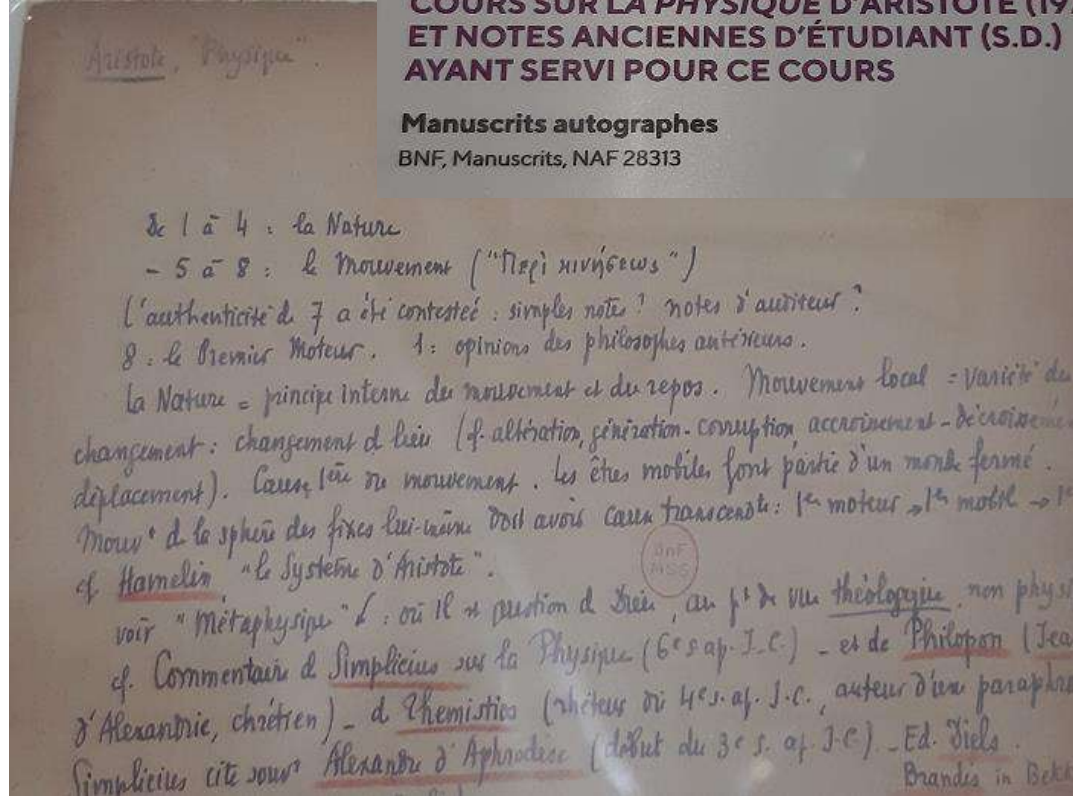 COURS SUR LA PHYSIQUE D'ARISTOTE (19
ET NOTES ANCIENNES D'ÉTUDIANT (S.D.)
AYANT SERVI POUR CE COURS
Manuscrits autographes
BNF, Manuscrits, NAF 28313
Aristote, "Physique".
de 1 à 4 : la Nature
- 5 à 8 : le Mouvement ("Περὶ κινήσεως")
L'authenticité de 7 a été contestée : simples notes ? notes d'auditeur ?
8 : le Premier Moteur. 1 : opinions des philosophes antérieurs.
La Nature = principe interne du mouvement et du repos. Mouvement local = variété du
changement : changement d lieu (cf. altération, génération-corruption, accroissement-décroissement
déplacement). Cause 1ère du mouvement. Les êtres mobiles font partie d'un monde fermé.
Mouvt d la sphère des fixes lui-même doit avoir cause transcendte : 1er moteur → 1er mobile → 1
cf Hamelin "le Système d'Aristote".
voir "Métaphysique" : où il question d Dieu, au pt de vue théologique, non phys
cf. Commentaire d Simplicius sur la Physique (6e s ap. J.C.) - et de Philopon (Jea
d'Alexandrie, chrétien) - d Themistios (rhéteur du 4e s. ap. J.C., auteur d'une paraphra
Simplicius cite souvt Alexandre d'Aphrodise (début du 3e s. ap J.C.) - Ed. Diels.
Brandis in Bekk
BnF
MSS